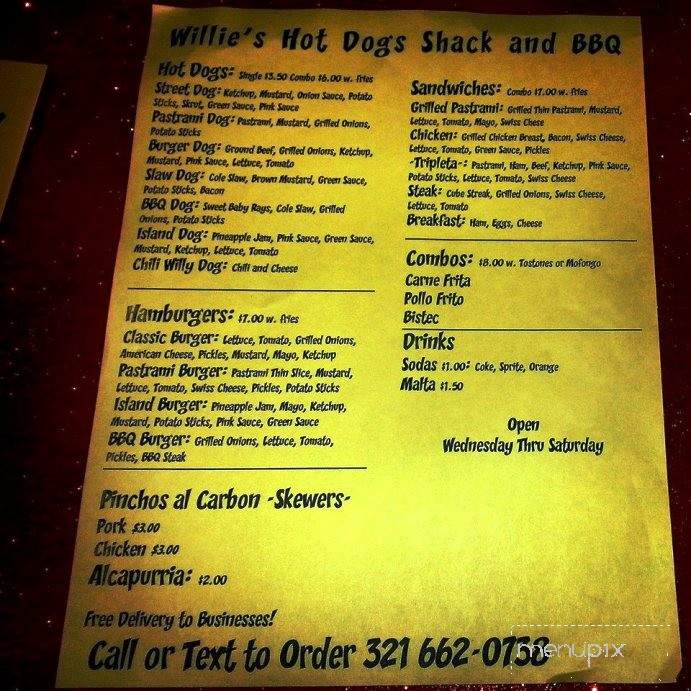 Willie's Hot Dogs Shack and BBQ
Hot Dogs: Single $3.50 Combo $6.00 w. fries
Street Dog: Ketchup, Mustard, Onion Sauce, Potato
Sticks, Skrut, Green Sauce, Pink Sauce
Pastrami Dog: Pastrami, Mustard, Grilled Onions,
Potato Sticks
Burger Dog: Ground Beef, Grilled Onions, Ketchup,
Mustard, Pink Sauce, Lettuce, Tomato
Slaw Dog: Cole Slaw, Brown Mustard, Green Sauce,
Potato Sticks, Bacon
BBQ Dog: Sweet Baby Rays, Cole Slaw, Grilled
Onions, Potato Sticks
Island Dog: Pineapple Jam, Pink Sauce, Green Sauce,
Mustard, Ketchup, Lettuce, Tomato
Chili Willy Dog: Chili and Cheese
Hamburgers: $7.00 w. fries
Classic Burger: Lettuce, Tomato, Grilled Onions,
American Cheese, Pickles, Mustard, Mayo, Ketchup
Pastrami Burger: Pastrami Thin Slice, Mustard,
Lettuce, Tomato, Swiss Cheese, Pickles, Potato Sticks
Island Burger: Pineapple Jam, Mayo, Ketchup,
Mustard, Potato Sticks, Pink Sauce, Green Sauce
BBQ Burger: Grilled Onions, Lettuce, Tomato,
Pickles, BBQ Steak
Pinchos al Carbon -Skewers-
Pork $3.00
Chicken $3.00
Alcapurria: $2.00
Sandwiches: Combo $7.00 w. fries
Grilled Pastrami: Grilled Thin Pastrami, Mustard,
Lettuce, Tomato, Mayo, Swiss Chese
Chicken: Grilled Chicken Breast, Bacon, Swiss Cheese,
Lettuce, Tomato, Green Sauce, Pickles
-Tripleta-: Pastrami, Ham, Beef, Ketchup, Pink Sauce,
Potato Sticks, Lettuce, Tomato, Swiss Cheese
Steak: Cube Streak, Grilled Onions, Swiss Cheese,
Lettuce, Tomato
Breakfast: Ham, Eggs, Cheese
Combos: $8.00 w. Tostones or Mofongo
Carne Frita
Pollo Frito
Bistec
Drinks
Sodas $1.00: Coke, Sprite, Orange
Malta $1.50
Open
Wednesday Thru Saturday
Free Delivery to Businesses!
Call or Text to Order 321 662-0738
menupix